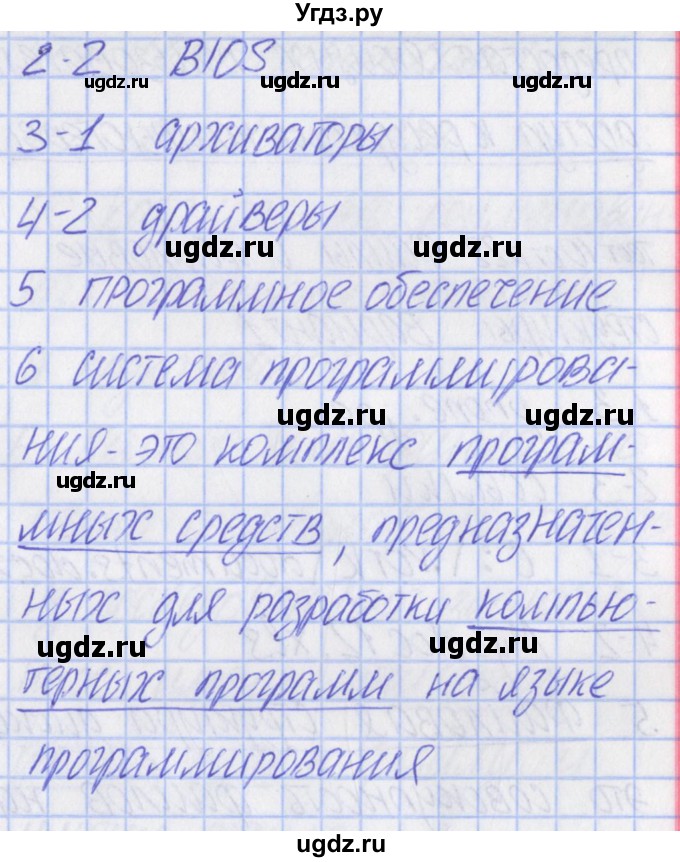 Угдз.ру
2-2 BIOS
ugdz.ru ugdz.ru
3-1 архиваторы
4-2 драйверы
ugdz.ru ugdz.ru
5 программное обеспечение
6 система программирова-
ugdz.ru ugdz.ru
ния - это комплекс програм-
ugdz.ru
мных средств, предназначен-
ных для разработки компью-
ugdz.ru ugdz.ru
терных программ на языке
программирования
ugdz.ru